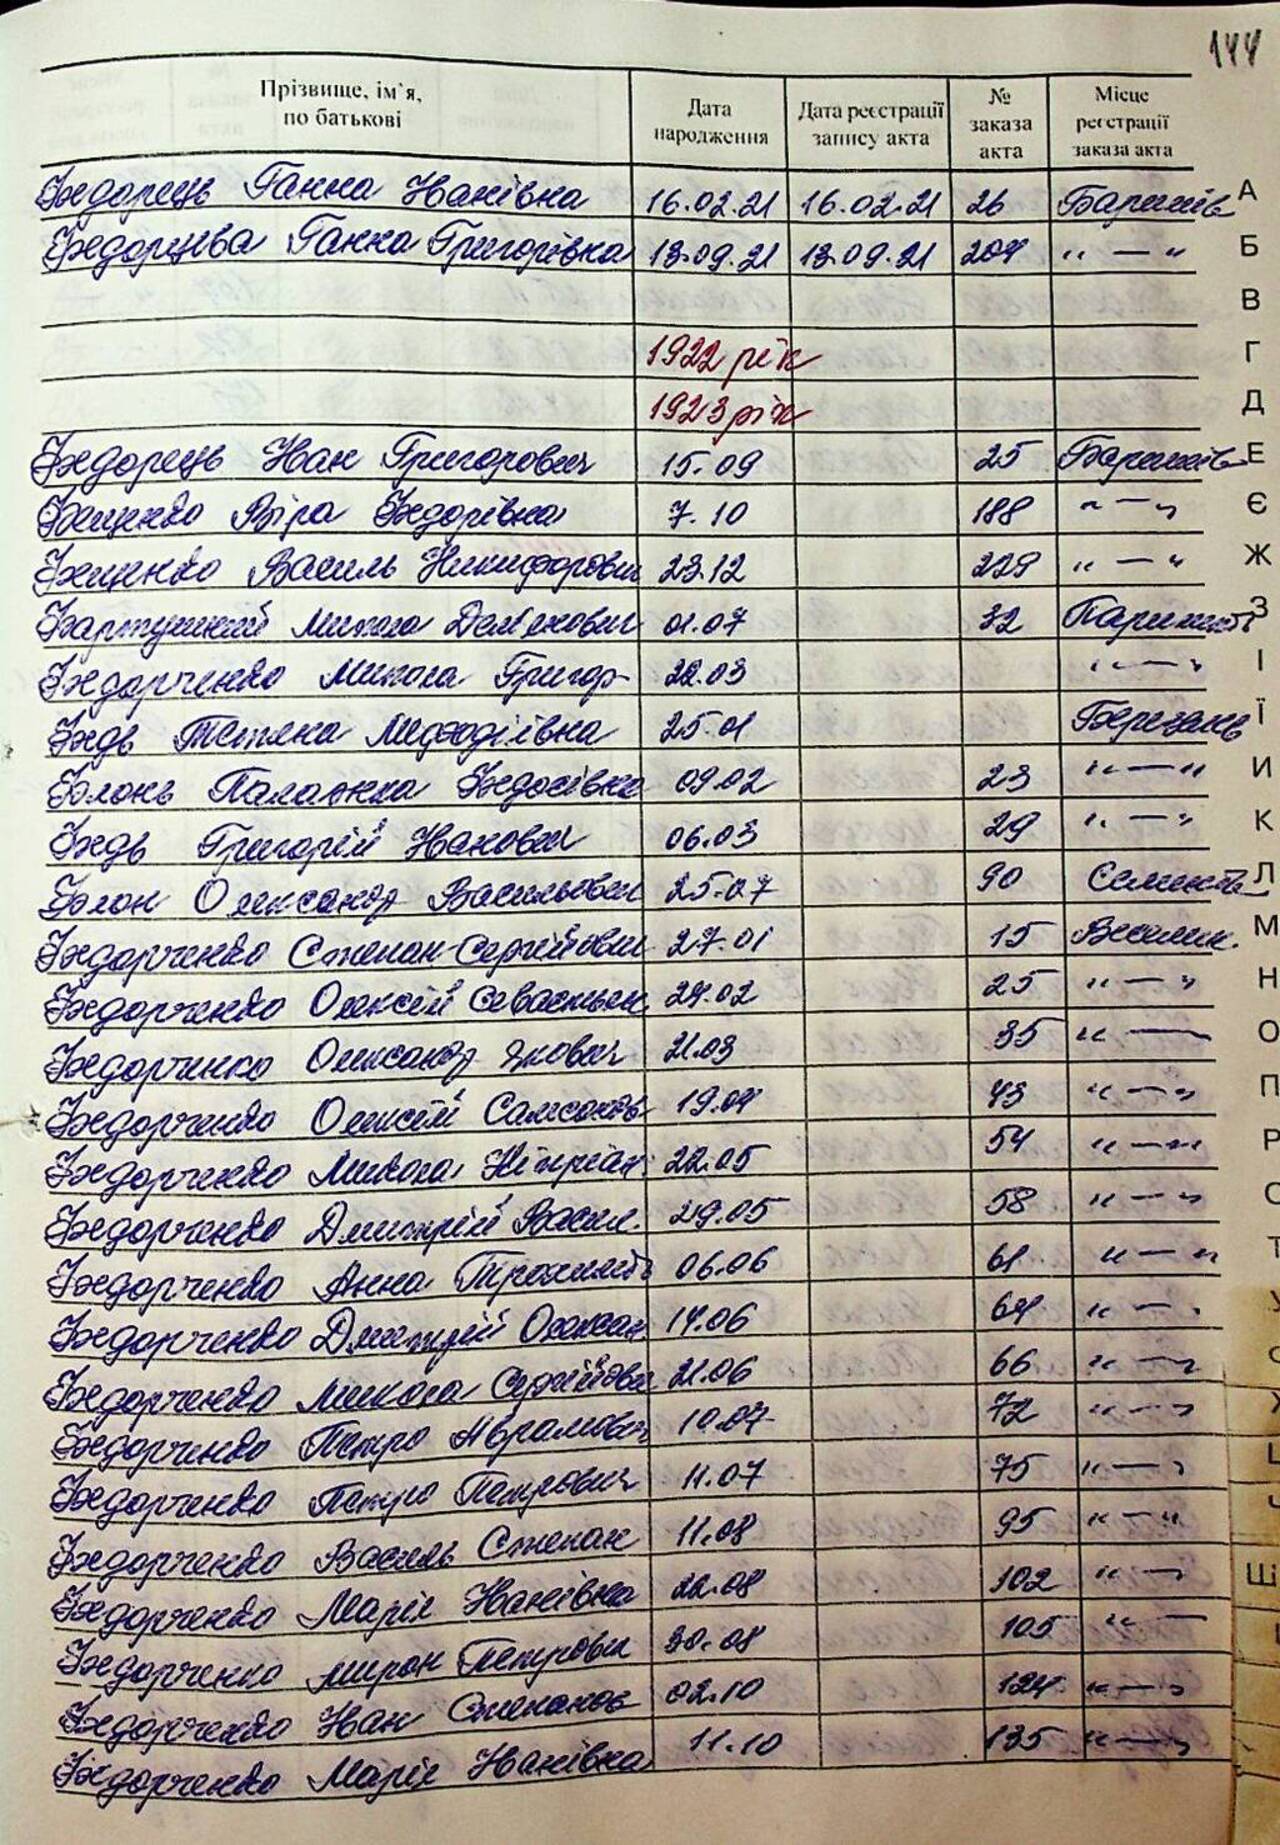 144
Прізвище, ім'я, по батькові Дата народження Дата реєстрації запису акта № заказа акта Місце реєстрації заказа акта
Федорець Ганна Іванівна 16.02.21 16.02.21 26 Баришів А
Федорцова Ганна Григорівна 13.09.21 13.09.21 207 " — " Б
В
1922 рік Г
1923 рік Д
Федорець Іван Григорович 15.09 25 Баришів Е
Фещенко Віра Федорівна 7.10 188 " — " Є
Фещенко Василь Никифорович 23.12 229 " — " Ж
Микола Дем'янович 01.07 32 З
Федорченко Микола Григор- 22.03 " — " І
Федь Тетяна Мефодіївна 25.01 Ї
Флонь Палажка Федосівна 09.02 23 " — " И
Федь Григорій Іванович 06.03 29 " — " К
Флон Олександр Васильович 25.07 90 Л
Федорченко Степан Сергійович 27.01 15 М
Федорченко Олексій Севастьян 24.02 25 " — " Н
Федорченко Олександр Якович 21.03 35 " — О
Федорченко Олексій Самсонов 19.04 43 " — " П
Федорченко Микола 22.05 54 " — " Р
Федорченко Дмитрій Васил. 29.05 58 " — " С
Федорченко Анна 06.06 61 " — " Т
Федорченко Дмитрій Олексан 14.06 64 " — " У
Федорченко Микола Сергійович 21.06 66 " — "
Федорченко Петро Абрамович 10.07 72 " — " Х
Федорченко Петро Петрович 11.07 75 " — " Ц
Федорченко Василь Степан 11.08 95 " — " Ч
Федорченко Марія Іванівна 22.08 102 " — "
Федорченко Мирон Петрович 30.08 105 " —
Федорченко Іван Степанов 02.10 124 " — "
Федорченко Марія Іванівна 11.10 135 " — "